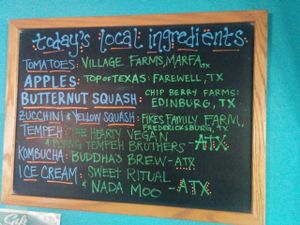 today's local ingredients
TOMATOES: VILLAGE FARMS, MARFA TX
APPLES: TOP OF TEXAS: FAREWELL, TX
BUTTERNUT SQUASH: CHIP BERRY FARMS:
EDINBURG, TX
ZUCCHINI & YELLOW SQUASH: FIKES FAMILY FARM,
FREDERICKSBURG, TX
TEMPEH: THE HEARTY VEGAN
TEMPEH BROTHERS - ATX
KOMBUCHA: BUDDHA'S BREW - ATX
ICE CREAM: SWEET RITUAL
& NADA MOO - ATX